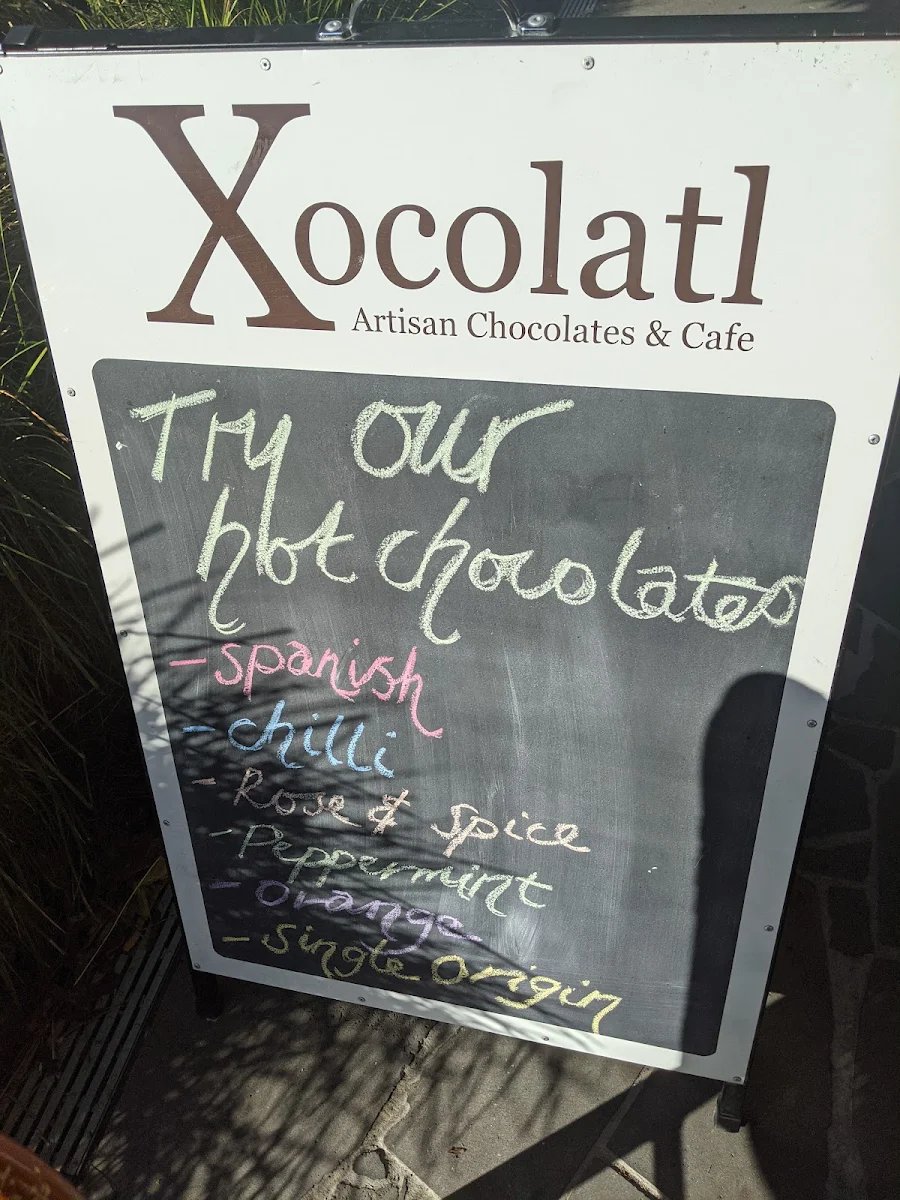 Xocolatl
Artisan Chocolates & Cafe
Try our
hot chocolates
- spanish
- chilli
- Rose & Spice
- Peppermint
- orange
- single origin